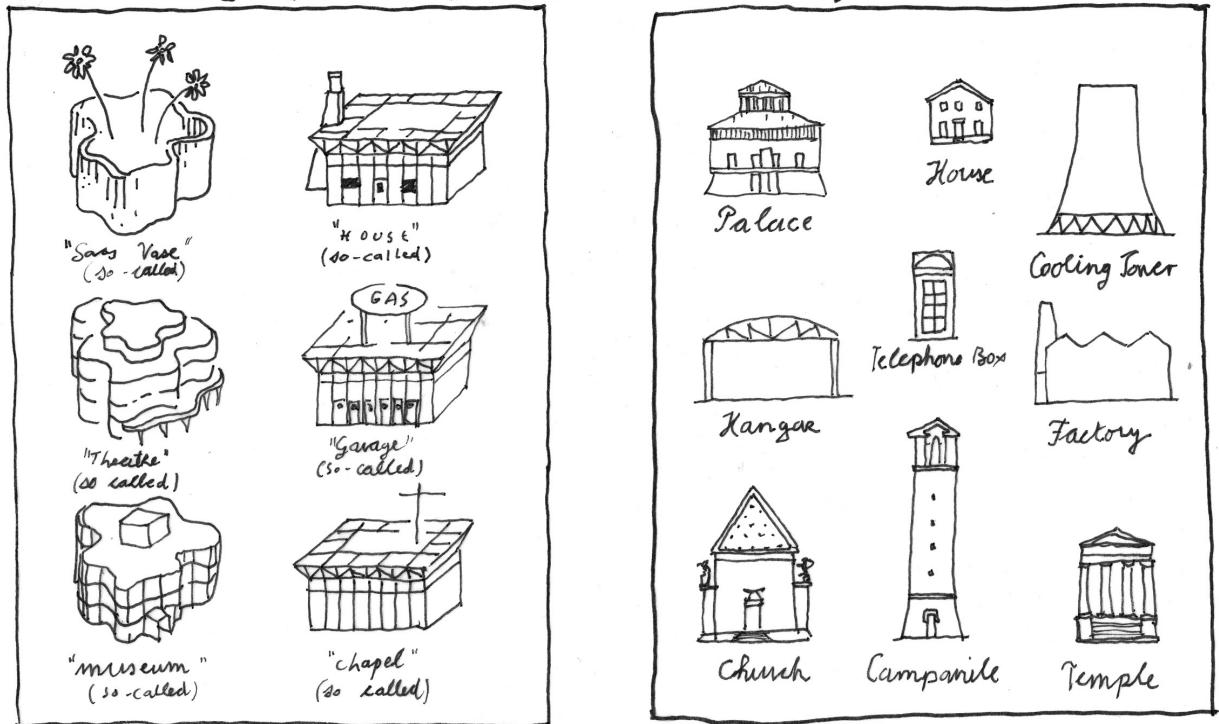 "HOUSE"
(so-called)
Vase"
(so-called)
GAS
"Theatre"
(so called)
"Garage"
(so-called)
"museum"
(so-called)
"chapel"
(so called)
Palace
House
Cooling Tower
Telephone Box
Hangar
Factory
Church
Campanile
Temple